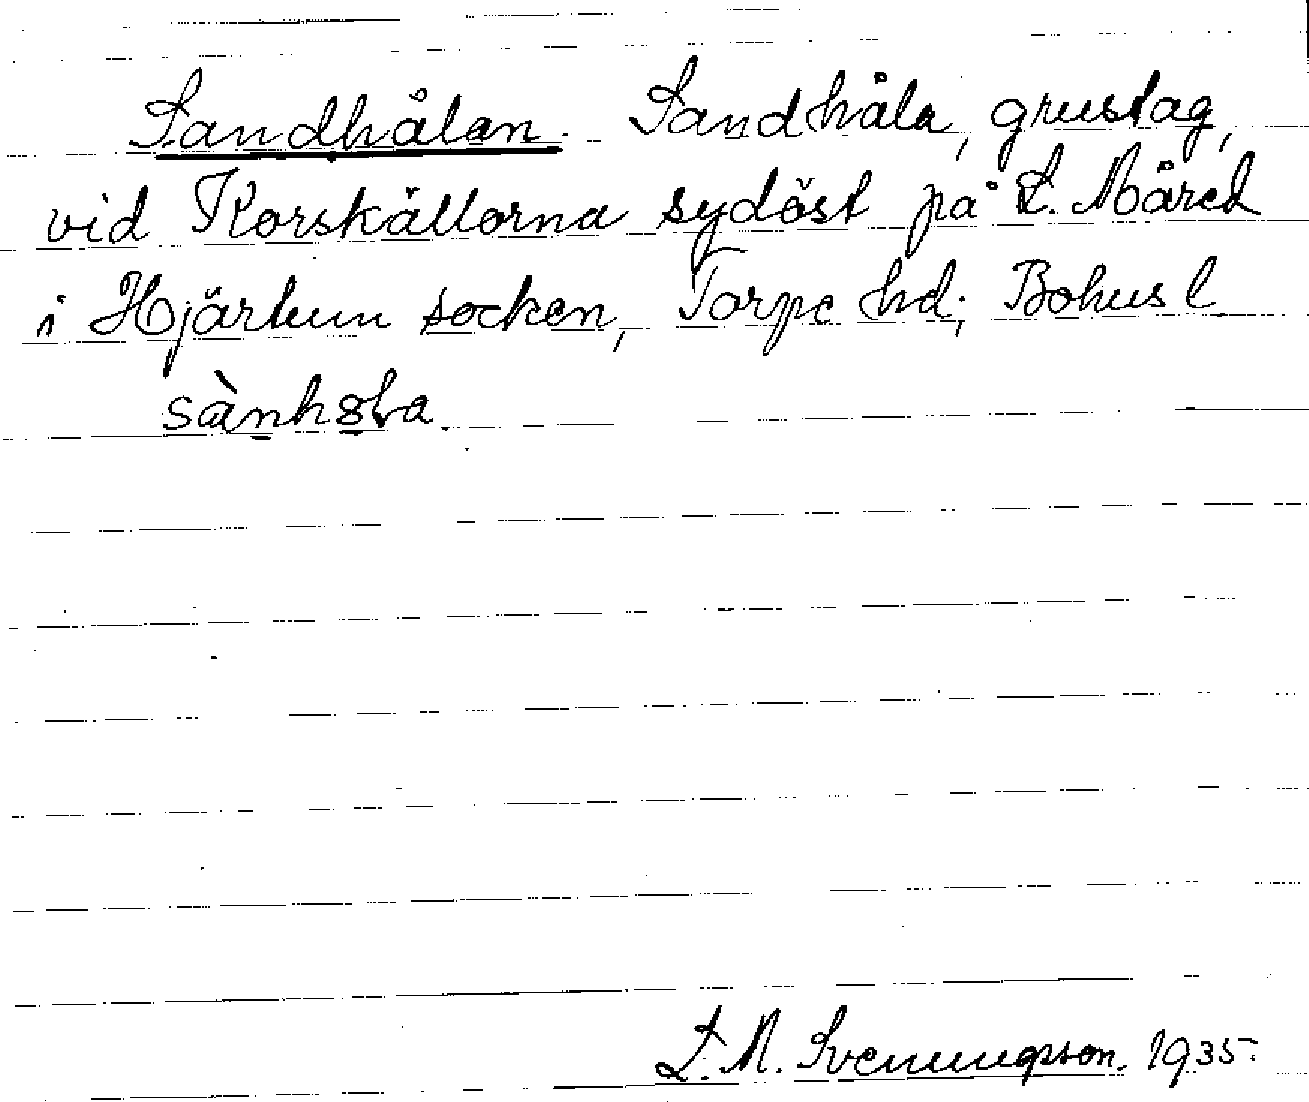 Sandhålan. Sandhåla, grustag,
vid Korskällorna sydöst på L. Måred
i Hjärtum socken, Torpe hd; Bohusl.
L. M. Svenungsson. 1935.